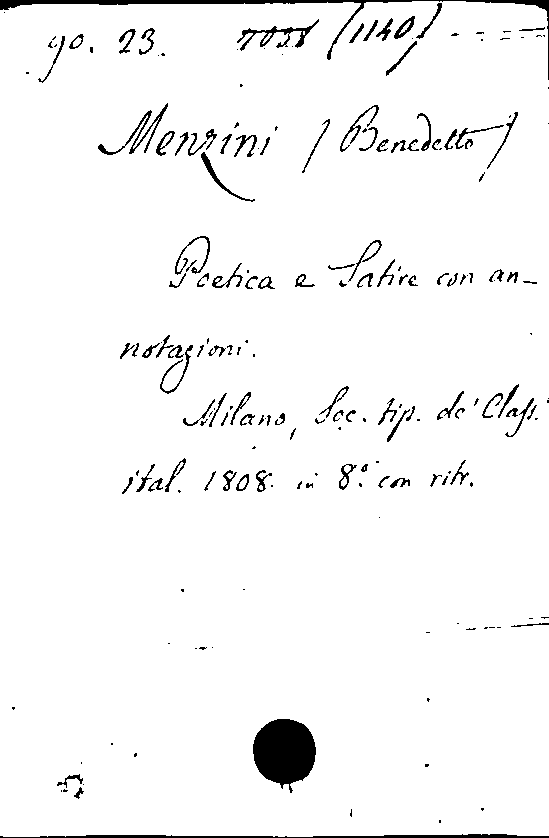 90. 23. 7058 (1140)
Menzini (Benedetto)
Poetica e Satire con an-
notazioni.
Milano, Soc. tip. de' Class.
ital. 1808. in 8.º con ritr.